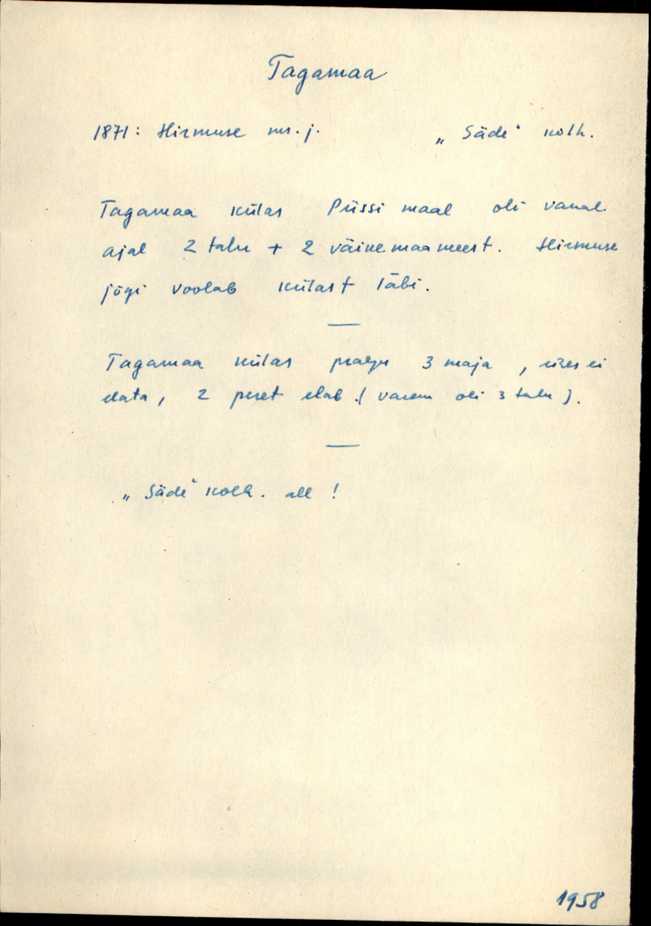 Tagamaa
1871: Hirmuse ms. j. „Säde" kolh.
Tagamaa külas Püssi maal oli vanal
ajal 2 talu + 2 väikemaameest. Hirmuse
jõgi voolab külast läbi.
Tagamaa külas praegu 3 maja, ühes ei
elata, 2 peret elab. (varem oli 3 talu).
„Säde" kolh. all!
1958